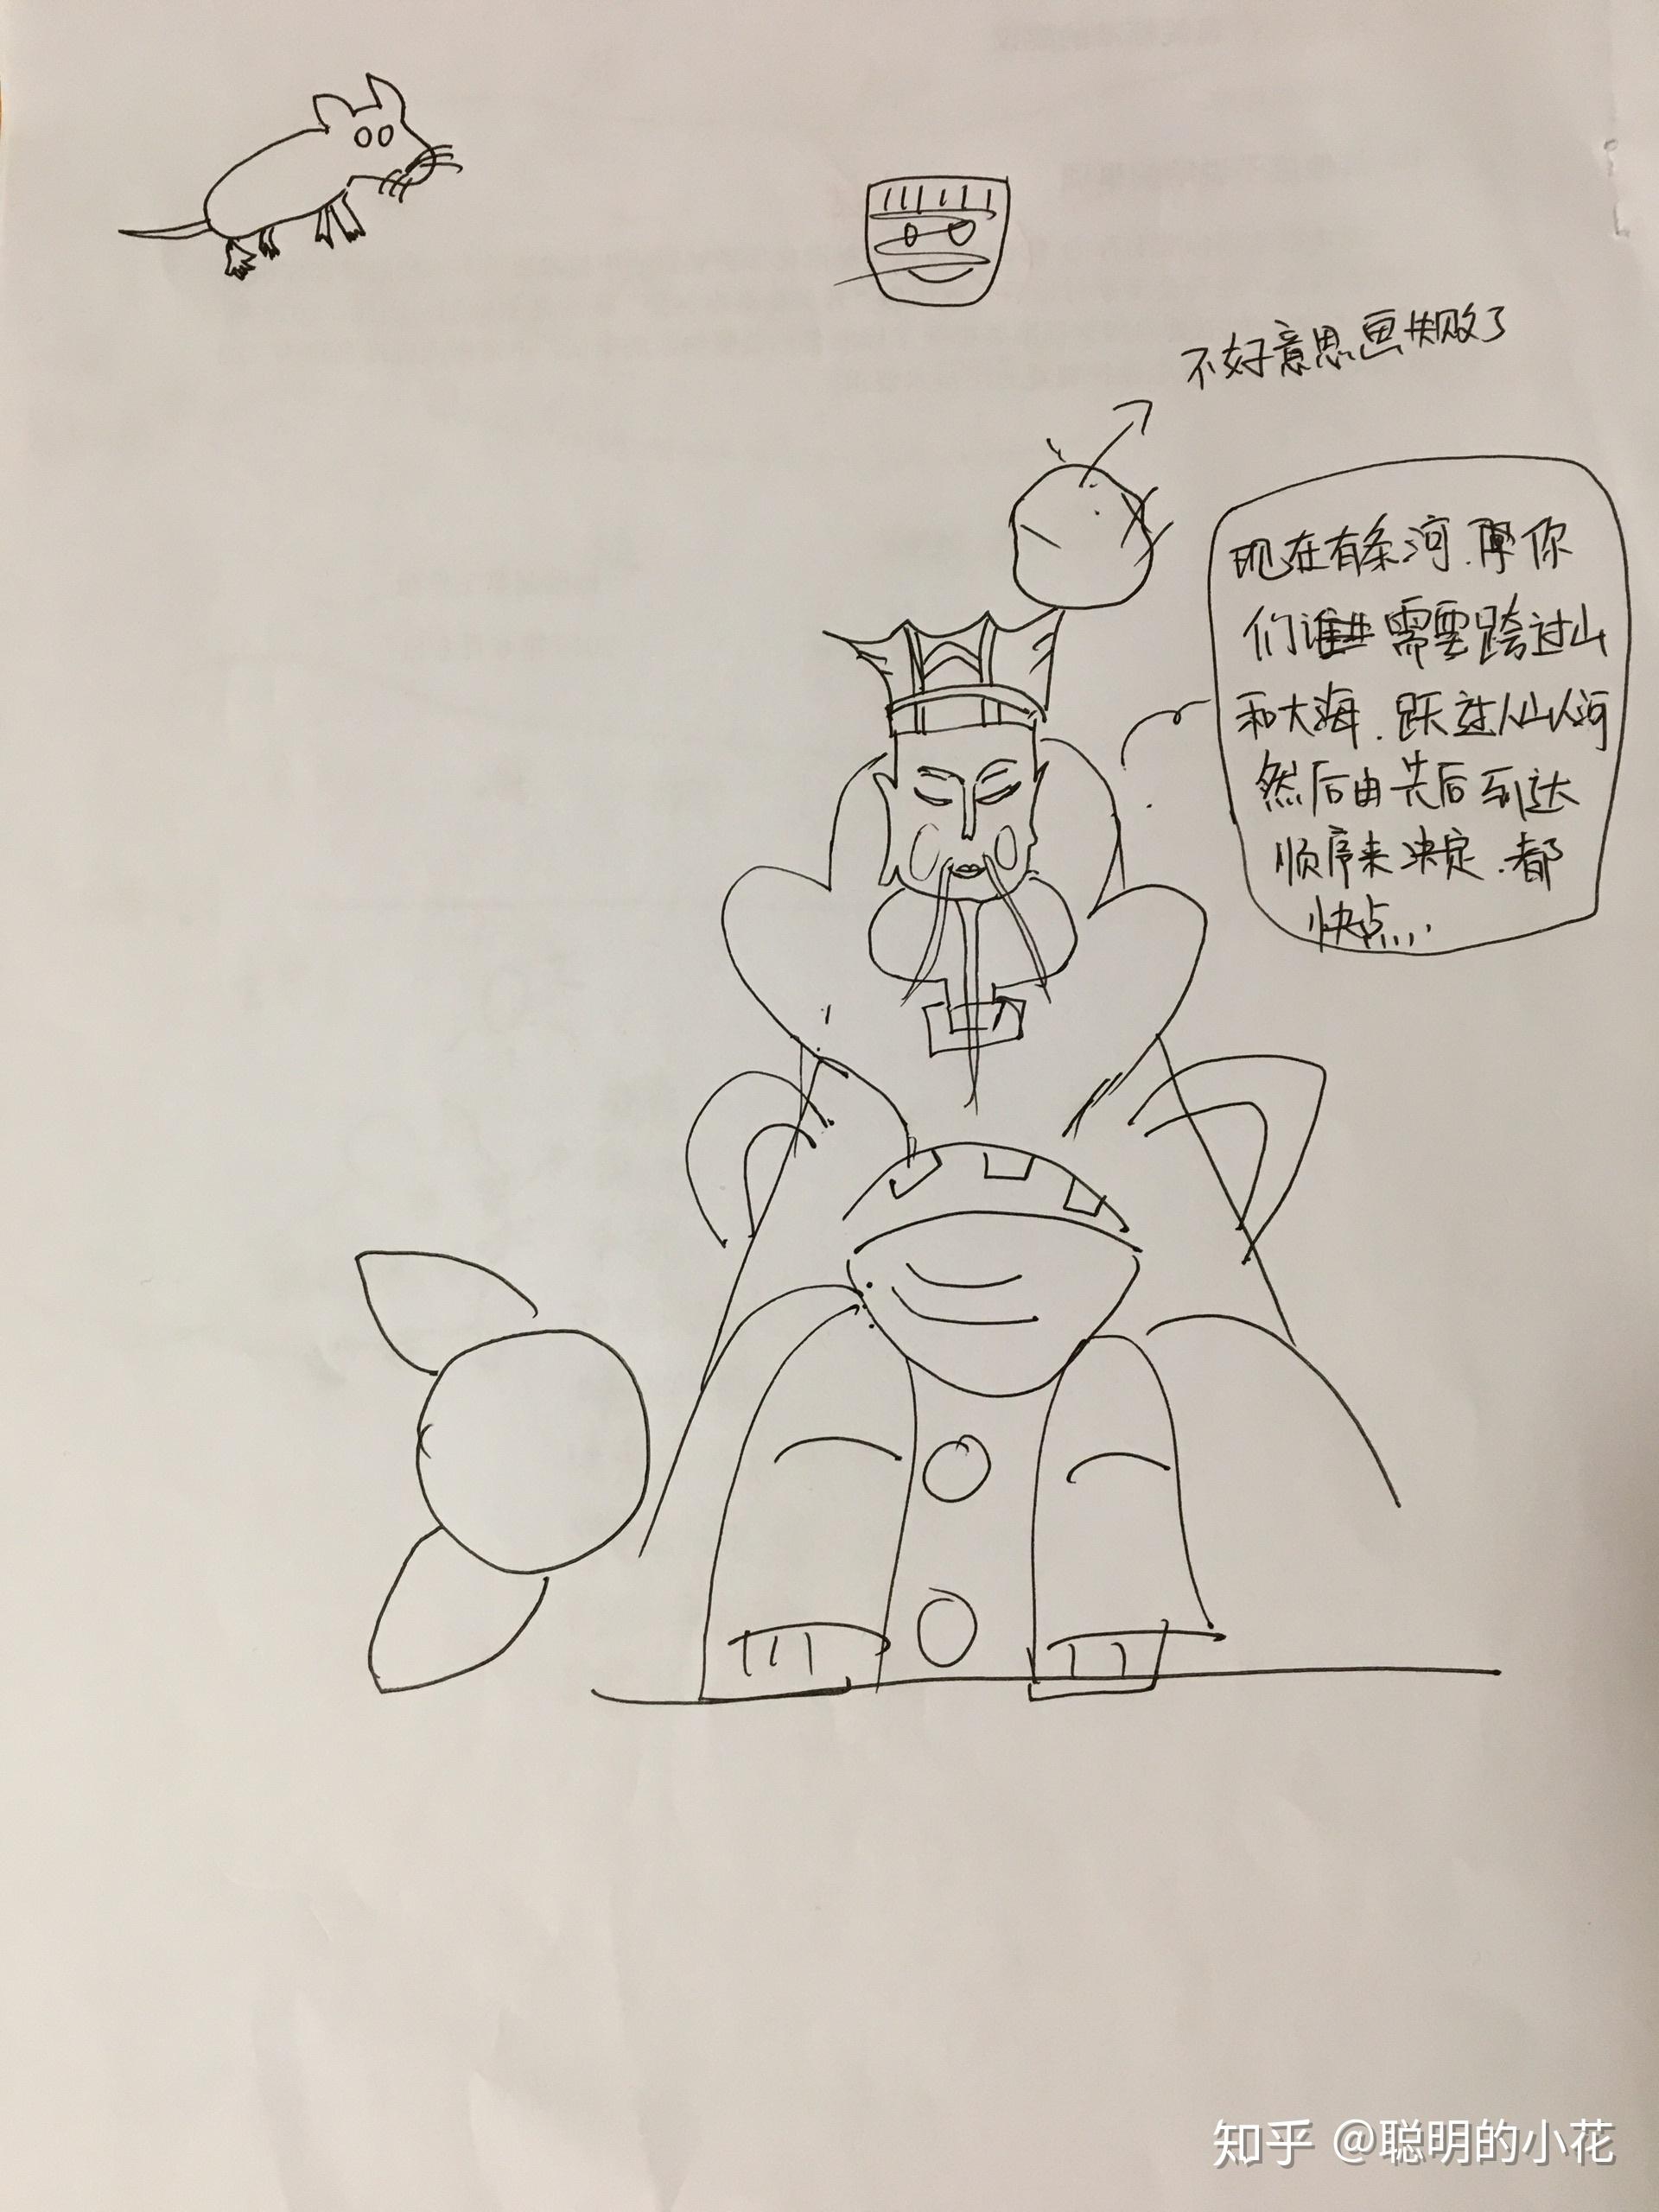 不好意思画失败了
现在有条河.陴你
们谁些需要跨过山
和大海.跃过人山人河
然后由先后到达
顺序来决定.都
快点...
知乎 @聪明的小花